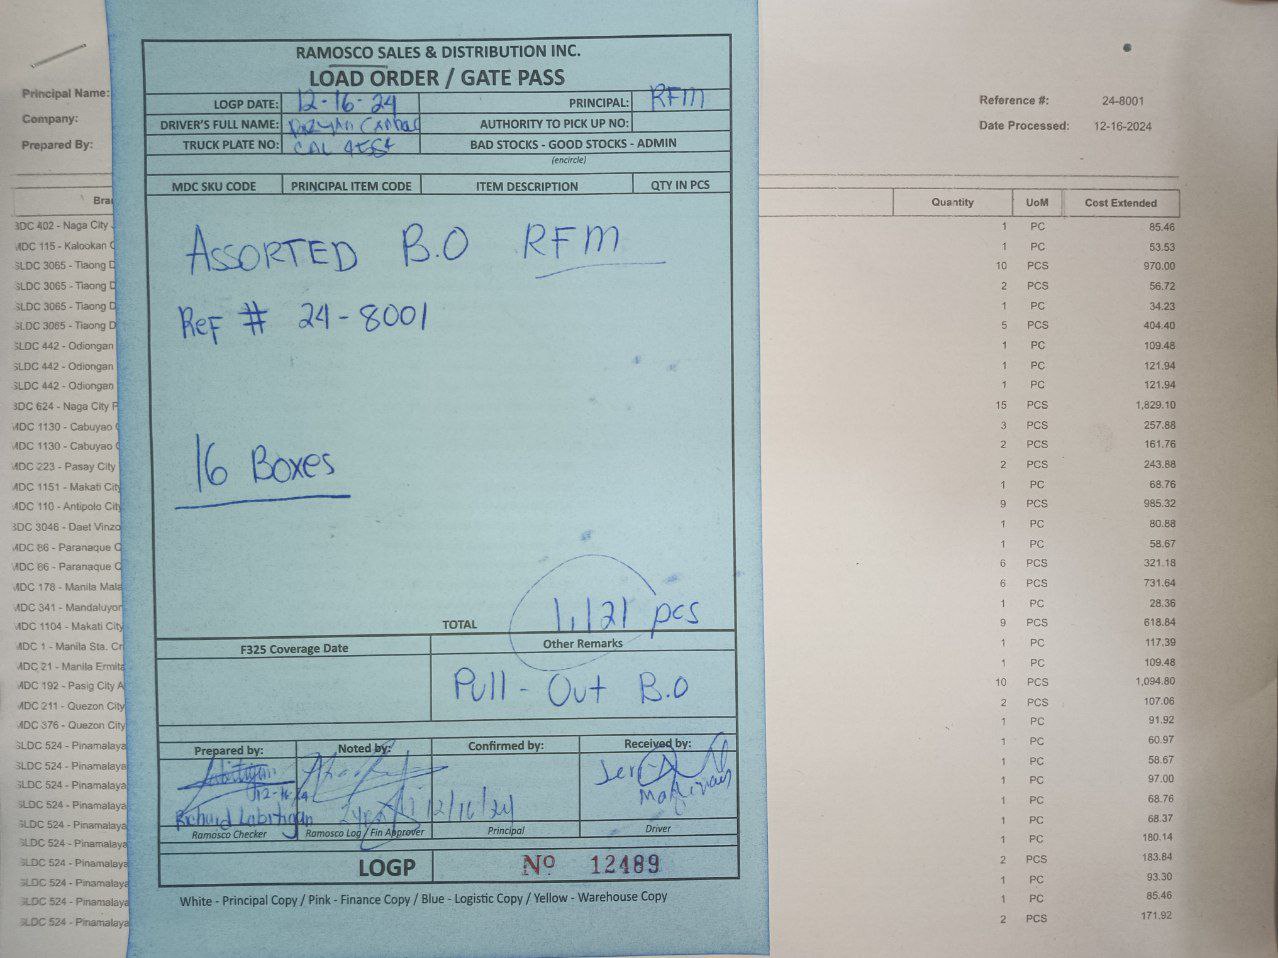 RAMOSCO SALES & DISTRIBUTION INC.
LOAD ORDER / GATE PASS
LOGP DATE: 12-16-24 PRINCIPAL: RFM
DRIVER'S FULL NAME: AUTHORITY TO PICK UP NO:
TRUCK PLATE NO: CAL BAD STOCKS - GOOD STOCKS - ADMIN
(encircle)
MDC SKU CODE PRINCIPAL ITEM CODE ITEM DESCRIPTION QTY IN PCS
ASSORTED B.O RFM
Ref # 24-8001
16 Boxes
TOTAL 1,121 pcs
F325 Coverage Date Other Remarks
Pull-Out B.O
Prepared by: Noted by: Confirmed by: Received by:
12-16-24
Richard Labitigan 12/16/24
Ramosco Checker Ramosco Log / Fin Approver Principal Driver
LOGP Nº 12489
White - Principal Copy / Pink - Finance Copy / Blue - Logistic Copy / Yellow - Warehouse Copy
Principal Name: Reference #: 24-8001
Company: Date Processed: 12-16-2024
Prepared By:
Quantity UoM Cost Extended
402 - Naga City 1 PC 85.46
115 - Kalookan 1 PC 53.53
SLDC 3065 - Tiaong D 10 PCS 970.00
SLDC 3065 - Tiaong D 2 PCS 56.72
SLDC 3065 - Tiaong D 1 PC 34.23
SLDC 3065 - Tiaong D 5 PCS 404.40
SLDC 442 - Odiongan 1 PC 109.48
SLDC 442 - Odiongan 1 PC 121.94
SLDC 442 - Odiongan 1 PC 121.94
624 - Naga City 15 PCS 1,829.10
MDC 1130 - Cabuyao 3 PCS 257.88
MDC 1130 - Cabuyao 2 PCS 161.76
MDC 223 - Pasay City 2 PCS 243.88
MDC 1151 - Makati City 1 PC 68.76
MDC 110 - Antipolo City 9 PCS 985.32
3046 - Daet Vinzo 1 PC 80.88
MDC 86 - Paranaque 1 PC 58.67
MDC 86 - Paranaque 6 PCS 321.18
MDC 178 - Manila Mala 6 PCS 731.64
MDC 341 - Mandaluyon 1 PC 28.36
MDC 1104 - Makati City 9 PCS 618.84
MDC 1 - Manila Sta. Cr 1 PC 117.39
MDC 21 - Manila Ermita 1 PC 109.48
MDC 192 - Pasig City A 10 PCS 1,094.80
MDC 211 - Quezon City 2 PCS 107.06
MDC 376 - Quezon City 1 PC 91.92
SLDC 524 - Pinamalaya 1 PC 60.97
SLDC 524 - Pinamalaya 1 PC 58.67
SLDC 524 - Pinamalaya 1 PC 97.00
SLDC 524 - Pinamalaya 1 PC 68.76
SLDC 524 - Pinamalaya 1 PC 68.37
SLDC 524 - Pinamalaya 1 PC 180.14
SLDC 524 - Pinamalaya 2 PCS 183.84
SLDC 524 - Pinamalaya 1 PC 93.30
SLDC 524 - Pinamalaya 1 PC 85.46
SLDC 524 - Pinamalaya 2 PCS 171.92